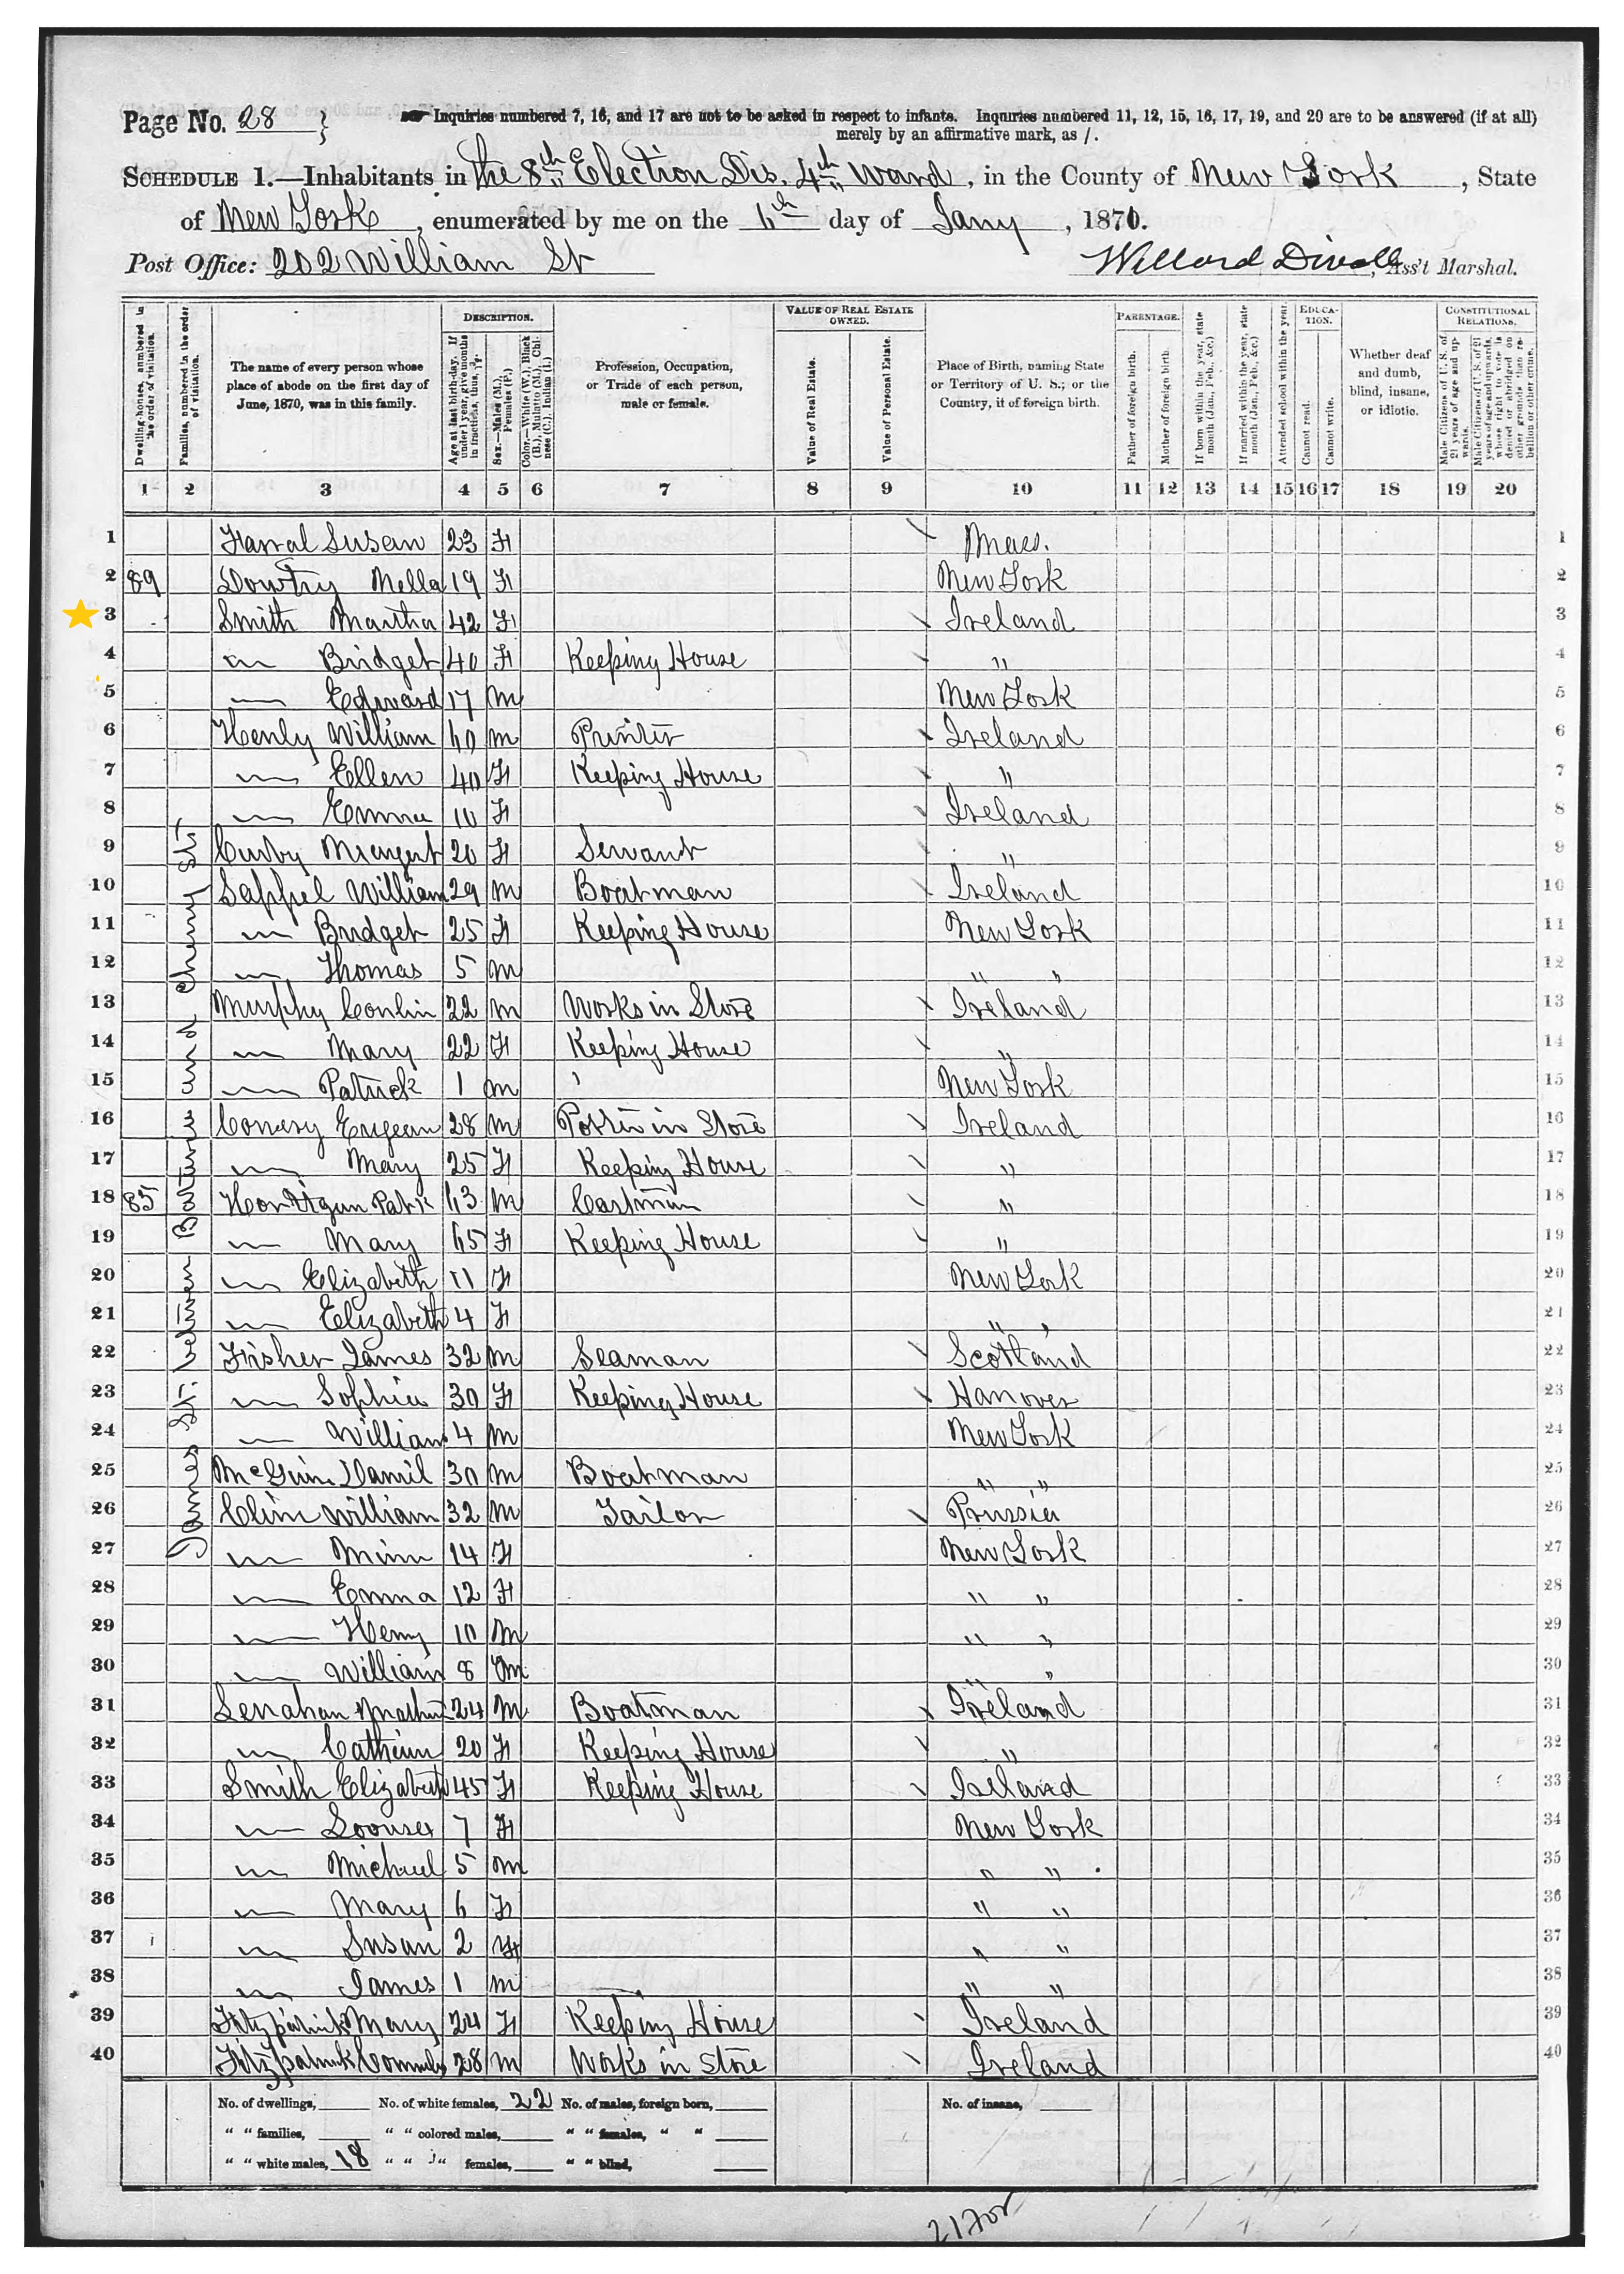 Page No. 28 }
Inquiries numbered 7, 16, and 17 are not to be asked in respect to infants. Inquiries numbered 11, 12, 15, 16, 17, 19, and 20 are to be answered (if at all)
merely by an affirmative mark, as /.
Schedule 1.—Inhabitants in the 8th Election Dis. 4th Ward, in the County of New York, State
of New York, enumerated by me on the 6th day of Jany, 1871.
Post Office: 202 William St Willard Ass't Marshal.
Dwelling-houses, numbered in the order of visitation.
Families, numbered in the order of visitation.
The name of every person whose place of abode on the first day of June, 1870, was in this family.
Description.
Age at last birth-day. If under 1 year, give months in fractions, thus, 3/12.
Sex.—Males (M.), Females (F.)
Color.—White (W.), Black (B.), Mulatto (M.), Chinese (C.), Indian (I.)
Profession, Occupation, or Trade of each person, male or female.
Value of Real Estate Owned.
Value of Real Estate.
Value of Personal Estate.
Place of Birth, naming State or Territory of U. S.; or the Country, if of foreign birth.
Parentage.
Father of foreign birth.
Mother of foreign birth.
If born within the year, state month (Jan., Feb., &c.)
If married within the year, state month (Jan., Feb., &c.)
Attended school within the year.
Education.
Cannot read.
Cannot write.
Whether deaf and dumb, blind, insane, or idiotic.
Constitutional Relations.
Male Citizens of U. S. of 21 years of age and upwards.
Male Citizens of U. S. of 21 years of age and upwards, whose right to vote is denied or abridged on other grounds than rebellion or other crime.
1 2 3 4 5 6 7 8 9 10 11 12 13 14 15 16 17 18 19 20
James St. between Batavia and Cherry St.
1 Farral Susan 23 F Mass. 1
2 89 Dowtry Mella 19 F New York 2
3 Smith Martha 42 F Ireland 3
4 — Bridget 40 F Keeping House " 4
5 — Edward 17 M New York 5
6 Henly William 60 M Printer Ireland 6
7 — Ellen 40 F Keeping House " 7
8 — Emma 10 F Ireland 8
9 Curby Margert 20 F Servant " 9
10 Sappel William 29 M Boatman Ireland 10
11 — Bridget 25 F Keeping House New York 11
12 — Thomas 5 M " " 12
13 Murphy Conlin 22 M Works in Store Ireland 13
14 — Mary 22 F Keeping House " 14
15 — Patrick 1 M New York 15
16 Conery Eugean 28 M Porter in Store Ireland 16
17 — Mary 25 F Keeping House " 17
18 85 Patk 63 M Cartman " 18
19 — Mary 65 F Keeping House " 19
20 — Elizabeth 11 F New York 20
21 — Elizabeth 4 F " " 21
22 Fisher James 32 M Seaman Scotland 22
23 — Sophia 30 F Keeping House Hanover 23
24 — William 4 M New York 24
25 McGuin Daniel 30 M Boatman " " 25
26 Clim William 32 M Tailor Prussia 26
27 — Minn 14 F New York 27
28 — Emma 12 F " " 28
29 — Henry 10 M " " 29
30 — William 8 M " " 30
31 Lenahan 24 M Boatman Ireland 31
32 — Catheim 20 F Keeping House " 32
33 Smith Elizabeth 45 F Keeping House Ireland 33
34 — Loouser 7 F New York 34
35 — Michael 5 M " " 35
36 — Mary 6 F " " 36
37 — Susan 2 F " " 37
38 — James 1 M " " 38
39 Fitzpatrick Mary 24 F Keeping House Ireland 39
40 Fitzpatrick 28 M Works in Store Ireland 40
No. of dwellings, No. of white females, 22 No. of males, foreign born, No. of insane,
" " families, " " colored males, " " females, " "
" " white males, 18 " " " females, " " blind,